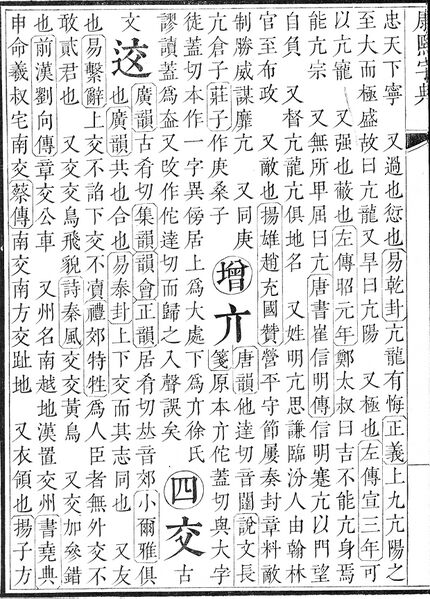 康熙字典
忠天下寧 又過也愆也易乾卦亢龍有悔正義上九亢陽之
至大而極盛故曰亢龍 又旱曰亢陽 又極也左傳宣三年可
以亢寵 又强也蔽也左傳昭元年鄭太叔曰吉不能亢身焉
能亢宗 又無所甲屈曰亢唐書崔信明傳信明蹇亢以門望
自負 又督亢龍亢俱地名 又姓明亢思謙臨汾人由翰林
官至布政 又敵也揚雄趙充國贊營平守節屢奏封章料敵
制勝威謀靡亢 又同庚
亢倉子莊子作庚桑子
增亣
唐韻他達切音闥說文長
箋原本亣佗蓋切與大字
徒蓋切本作一字異傍居上爲大處下爲亣徐氏
謬讀蓋爲盍又改作佗達切而歸之入聲誤矣
四交
古
文
廣韻古肴切集韻韻會正韻居肴切𠀤音郊小爾雅俱
也廣韻共也合也易泰卦上下交而其志同也 又友
也易繫辭上交不諂下交不瀆禮郊特牲爲人臣者無外交不
敢貳君也 又交交鳥飛貌詩秦風交交黃鳥 又交加參錯
也前漢劉向傳章交公車 又州名南越地漢置交州書堯典
申命羲叔宅南交蔡傳南交南方交趾地 又衣領也揚子方